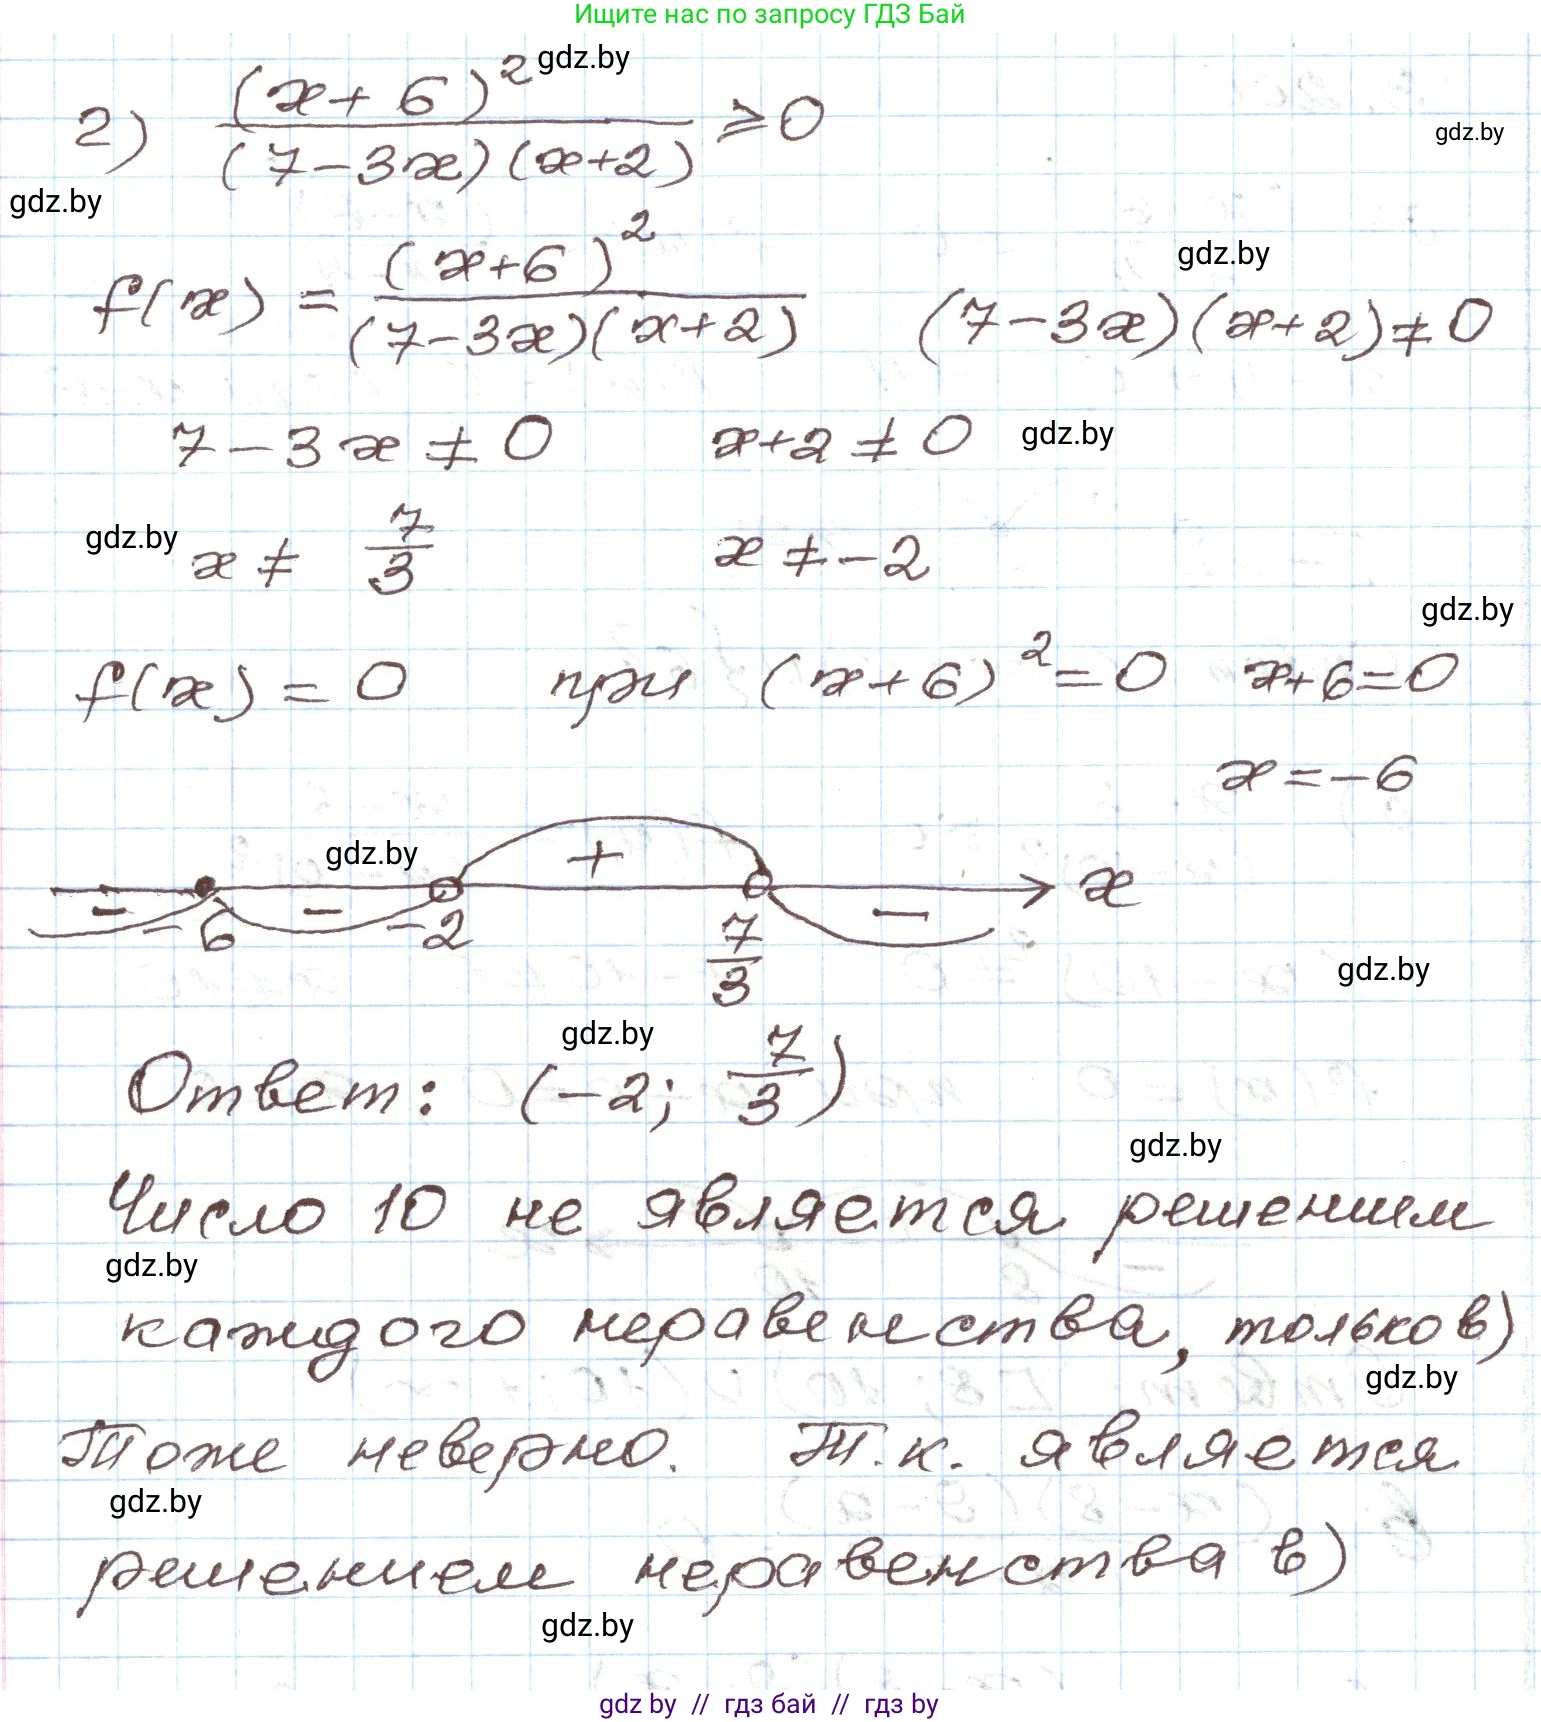 Ищите нас по запросу ГДЗ Бай
gdz.by
2) (x+6)² / (7-3x)(x+2) ⩾ 0
gdz.by
gdz.by
f(x) = (x+6)² / (7-3x)(x+2) (7-3x)(x+2) ≠ 0
gdz.by
7-3x ≠ 0 x+2 ≠ 0 gdz.by
gdz.by x ≠ 7/3 x ≠ -2
gdz.by
f(x) = 0 при (x+6)² = 0 x+6=0
x = -6
gdz.by
- - + - x
-6 -2 7/3
gdz.by
gdz.by
Ответ: (-2; 7/3)
gdz.by
Число 10 не является решением
gdz.by
каждого неравенства, только в)
gdz.by
Тоже неверно. Т.к. является
gdz.by
решением неравенства в)
gdz.by
gdz by // гдз бай // гдз by